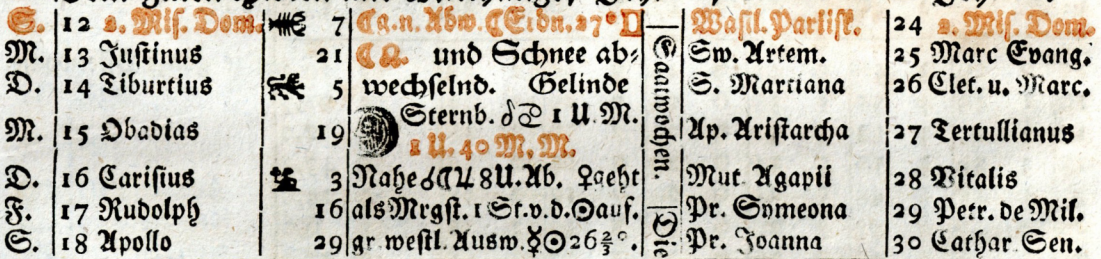 S. 12 2. Mis. Dom. 7 ☾ a. n. Abw. ☾ Erdn. 27° ♊ Wasil. Pariisk. 24 2. Mis. Dom.
M. 13 Justinus 21 ☾☊. und Schnee ab⸗ Sw. Artem. 25 Marc Evang.
D. 14 Tiburtius 5 wechselnd. Gelinde S. Martiana 26 Clet. u. Marc.
Sternb. ☌ 1 U. M.
M. 15 Obadias 19 Ap. Aristarcha 27 Tertullianus
1 U. 40 M. M.
D. 16 Carisius 3 Nahe ☌☾♃ 8 U. Ab. ♀ geht Mut. Agapii 28 Vitalis
F. 17 Rudolph 16 als Mrgst. 1 St. v. d. ☉ auf. Pr. Symeona 29 Petr. de Mil.
S. 18 Apollo 29 gr. westl. Ausw. ☿☉ 26⅔°. Pr. Joanna 30 Cathar. Sen.
Saatwochen.
Die